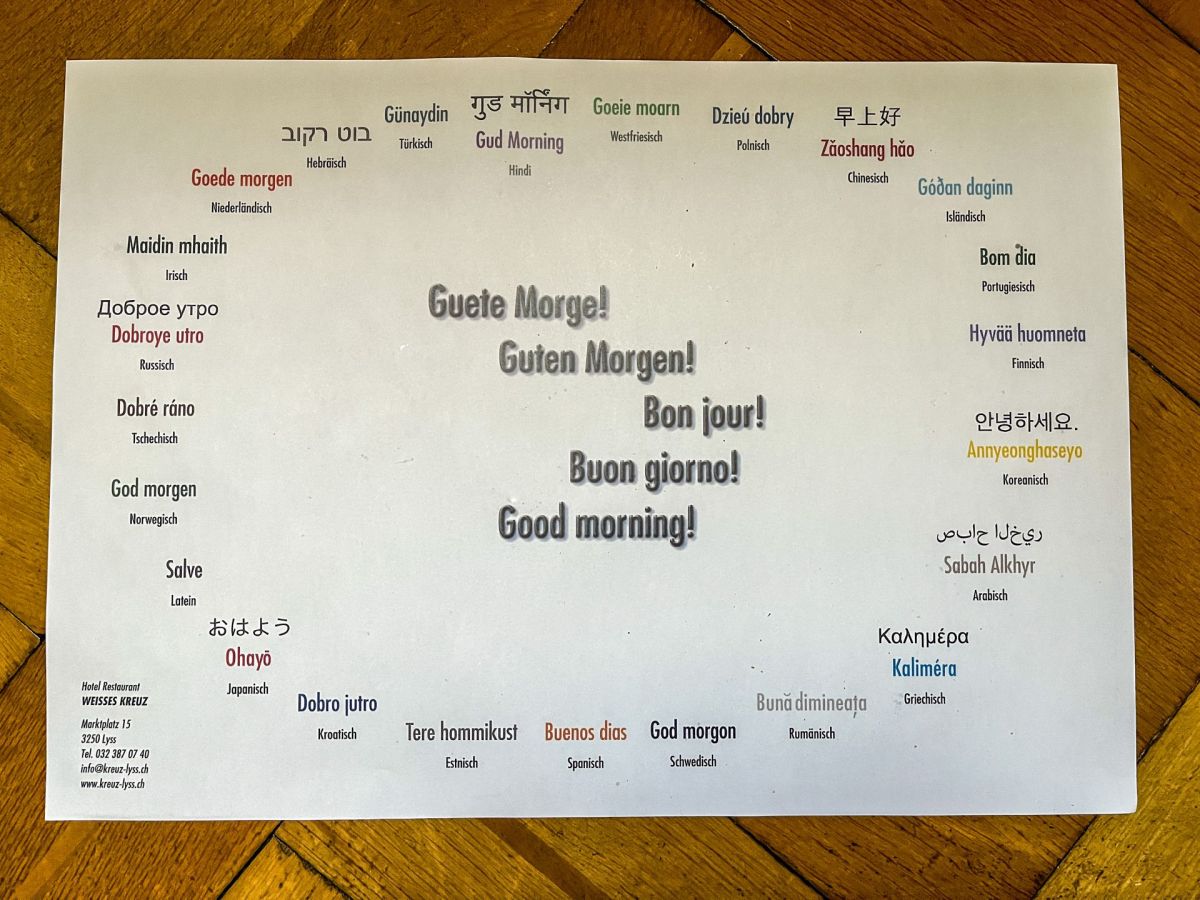 Günaydin
Türkisch
गुड मॉर्निंग
Gud Morning
Hindi
Goeie moarn
Westfriesisch
Dzieú dobry
Polnisch
早上好
Zăoshang hăo
Chinesisch
בוט רקוב
Hebräisch
Goede morgen
Niederländisch
Góðan daginn
Isländisch
Maidin mhaith
Irisch
Bom dia
Portugiesisch
Доброе утро
Dobroye utro
Russisch
Hyvää huomneta
Finnisch
Dobré ráno
Tschechisch
안녕하세요.
Annyeonghaseyo
Koreanisch
God morgen
Norwegisch
ريخلا حابص
Sabah Alkhyr
Arabisch
Salve
Latein
Καλημέρα
Kaliméra
Griechisch
おはよう
Ohayō
Japanisch
Dobro jutro
Kroatisch
Tere hommikust
Estnisch
Buenos dias
Spanisch
God morgon
Schwedisch
Bună dimineața
Rumänisch
Guete Morge!
Guten Morgen!
Bon jour!
Buon giorno!
Good morning!
Hotel Restaurant
WEISSES KREUZ
Marktplatz 15
3250 Lyss
Tel. 032 387 07 40
info@kreuz-lyss.ch
www.kreuz-lyss.ch